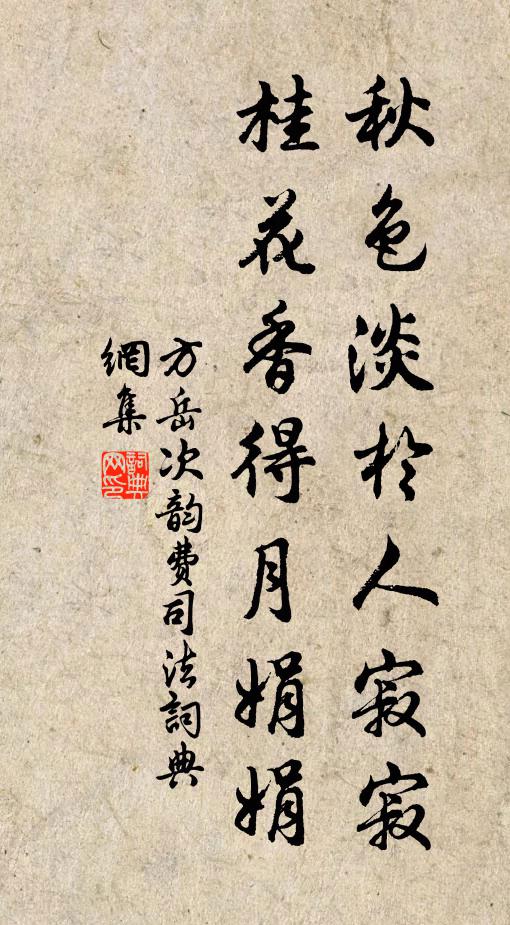 秋色淡於人寂寂
桂花香得月娟娟
方岳次韵費司法詞典
網集
詞典網印